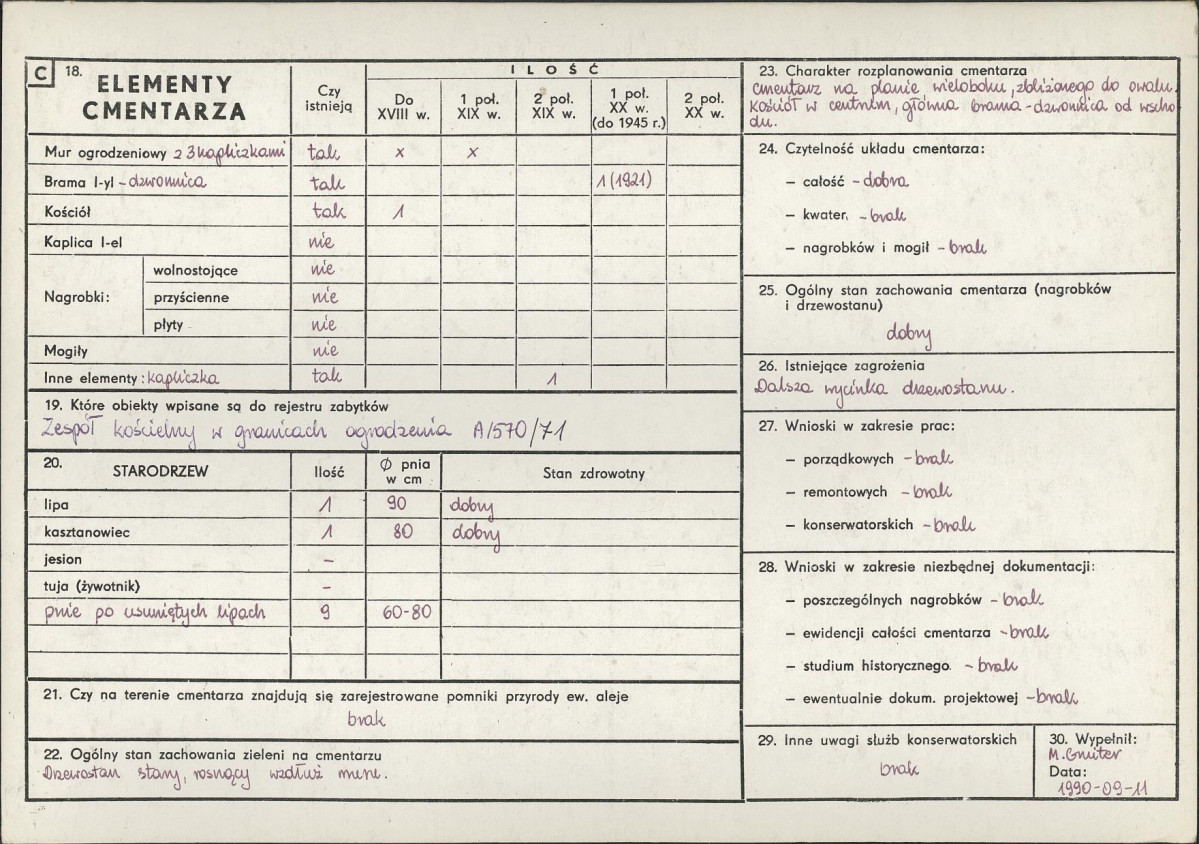 C 18. ELEMENTY CMENTARZA
Czy istnieją
ILOŚĆ
Do XVIII w.
1 poł. XIX w.
2 poł. XIX w.
1 poł. XX w. (do 1945 r.)
2 poł. XX w.
Mur ogrodzeniowy z 3 kapliczkami tak x x
Brama I-yl - dzwonnica tak 1 (1921)
Kościół tak 1
Kaplica I-el nie
Nagrobki:
wolnostojące nie
przyścienne nie
płyty nie
Mogiły nie
Inne elementy: kapliczka tak 1
19. Które obiekty wpisane są do rejestru zabytków
Zespół kościelny w granicach ogrodzenia A/570/71
20. STARODRZEW Ilość Ø pnia w cm Stan zdrowotny
lipa 1 90 dobry
kasztanowiec 1 80 dobry
jesion –
tuja (żywotnik) –
pnie po usuniętych lipach 9 60-80
21. Czy na terenie cmentarza znajdują się zarejestrowane pomniki przyrody ew. aleje
brak
22. Ogólny stan zachowania zieleni na cmentarzu
Drzewostan stary, rosnący wzdłuż muru.
23. Charakter rozplanowania cmentarza
cmentarz na planie wieloboku, zbliżonego do owalu.
Kościół w centrum, główna brama-dzwonnica od wscho
du.
24. Czytelność układu cmentarza:
– całość - dobra
– kwater, - brak
– nagrobków i mogił - brak
25. Ogólny stan zachowania cmentarza (nagrobków
i drzewostanu)
dobry
26. Istniejące zagrożenia
Dalsza wycinka drzewostanu.
27. Wnioski w zakresie prac:
– porządkowych - brak
– remontowych - brak
– konserwatorskich - brak
28. Wnioski w zakresie niezbędnej dokumentacji:
– poszczególnych nagrobków - brak
– ewidencji całości cmentarza - brak
– studium historycznego. - brak
– ewentualnie dokum. projektowej - brak
29. Inne uwagi służb konserwatorskich
brak
30. Wypełnił:
M.
Data:
1990-09-11